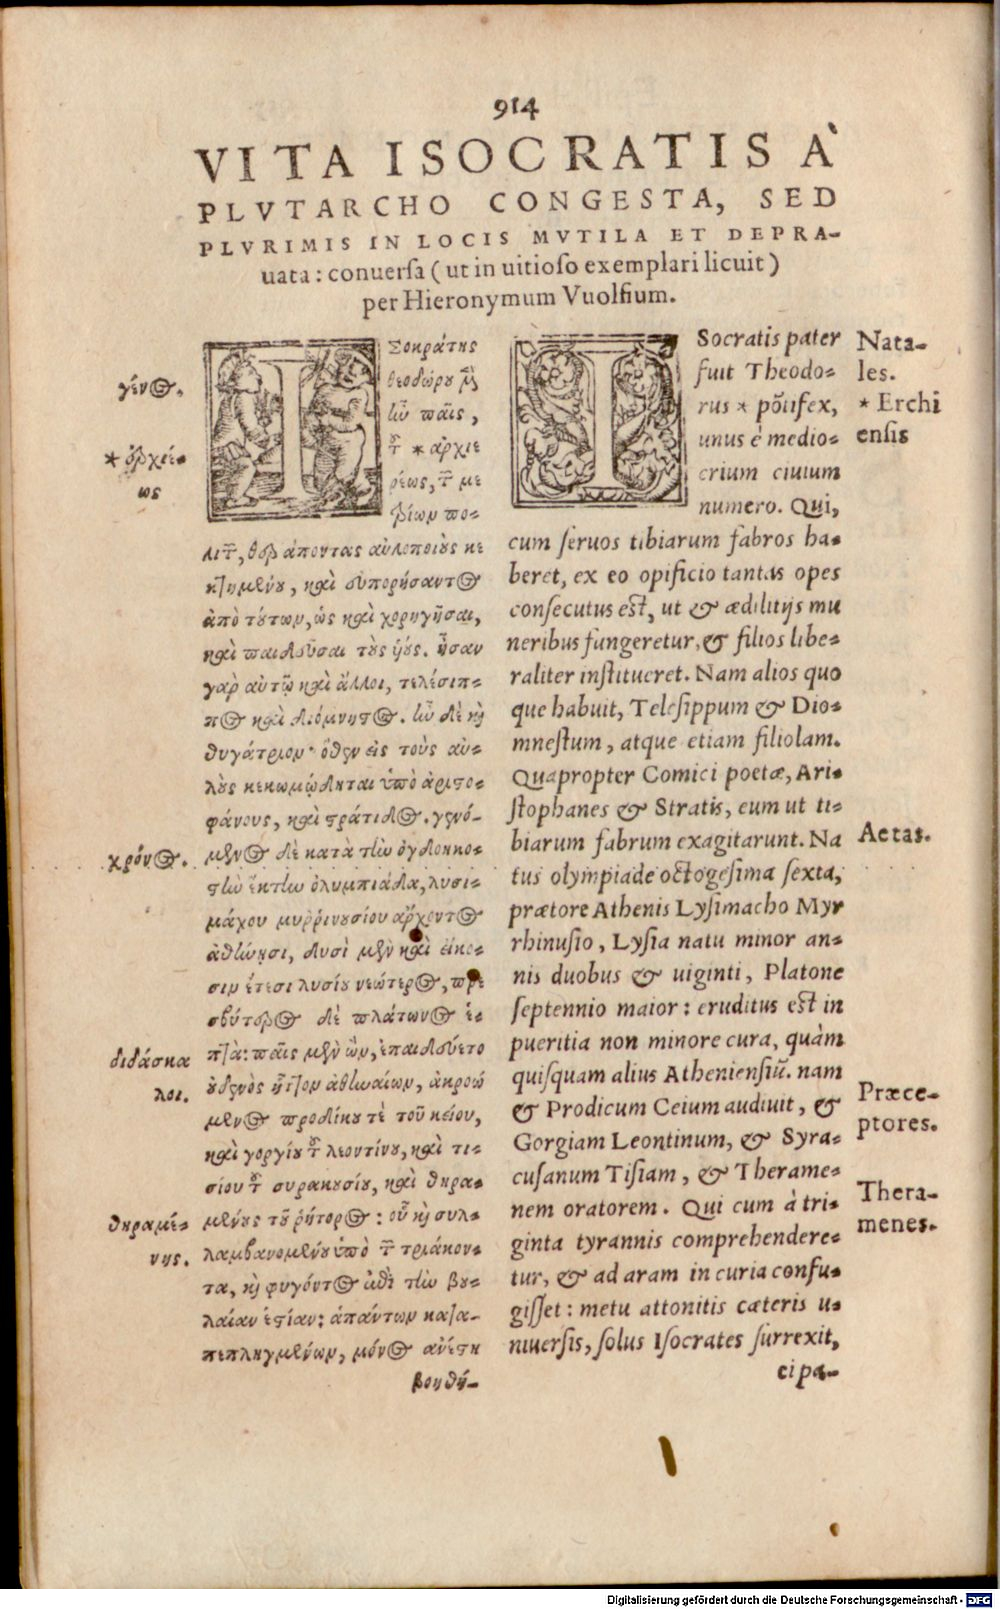 914
VITA ISOCRATIS À
PLVTARCHO CONGESTA, SED
PLVRIMIS IN LOCIS MVTILA ET DEPRA-
uata: conuersa (ut in uitioso exemplari licuit)
per Hieronymum Vuolfium.
γένος.
* ἀρχιέ-
ως
χρόνος.
διδάσκα
λοι.
θηραμέ-
νης.
ΙΣοκράτης
θεοδώρου μὲν
ἦν παῖς,
τοῦ * ἀρχιε
ρέως, τῶν με
τρίων πο-
λιτῶν, θεράποντας αὐλοποιοὺς κε
κτημένου, καὶ εὐπορήσαντος
ἀπὸ τούτων, ὡς καὶ χορηγῆσαι,
καὶ παιδεῦσαι τοὺς ὑιούς. ἦσαν
γὰρ αὐτῷ καὶ ἄλλοι, τελέσιπ-
πος καὶ διόμνηστος. ἦν δὲ καὶ
θυγάτριον· ὅθεν εἰς τοὺς αὐ-
λοὺς κεκωμῴδηται ὑπὸ ἀριστο-
φάνους, καὶ στράτιδος. γενό-
μενος δὲ κατὰ τὴν ὀγδοηκο-
στὴν ἕκτην ὀλυμπιάδα, λυσι-
μάχου μυρρινουσίου ἄρχοντος
ἀθήνησι, δυσὶ μὲν καὶ εἴκο-
σιν ἔτεσι λυσίου νεώτερος, πρε
σβύτερος δὲ πλάτωνος ἑ-
πτά: παῖς μὲν ὢν, ἐπαιδεύετο
οὐδενὸς ἧττον ἀθηναίων, ἀκροώ
μενος προδίκου τὲ τοῦ κείου,
καὶ γοργίου τοῦ λεοντίνου, καὶ τι-
σίου τοῦ συρακουσίου, καὶ θηρα-
μένους τοῦ ῥήτορος: οὗ καὶ συλ-
λαμβανομένου ὑπὸ τῶν τριάκον-
τα, καὶ φυγόντος ἐπὶ τὴν βου-
λαίαν ἑστίαν: ἁπάντων κατα-
πεπληγμένων, μόνος ἀνέστη
βοηθή-
ISocratis pater
fuit Theodo-
rus * põtifex,
unus è medio-
crium ciuium
numero. Qui,
cum seruos tibiarum fabros ha-
beret, ex eo opificio tantas opes
consecutus est, ut & ædilitijs mu
neribus fungeretur, & filios libe-
raliter institueret. Nam alios quo
que habuit, Telesippum & Dio-
mnestum, atque etiam filiolam.
Quapropter Comici poetæ, Ari-
stophanes & Stratis, eum ut ti-
biarum fabrum exagitarunt. Na
tus olympiade octogesima sexta,
prætore Athenis Lysimacho Myr
rhinusio, Lysia natu minor an-
nis duobus & uiginti, Platone
septennio maior: eruditus est in
pueritia non minore cura, quàm
quisquam alius Atheniensiũ. nam
& Prodicum Ceium audiuit, &
Gorgiam Leontinum, & Syra-
cusanum Tisiam, & Therame-
nem oratorem. Qui cum à tri-
ginta tyrannis comprehendere-
tur, & ad aram in curia confu-
gisset: metu attonitis cæteris u-
niuersis, solus Isocrates surrexit,
ei pa-
Nata-
les.
* Erchi
ensis
Aetas.
Præce-
ptores.
Thera-
menes.
Digitalisierung gefördert durch die Deutsche Forschungsgemeinschaft - DFG